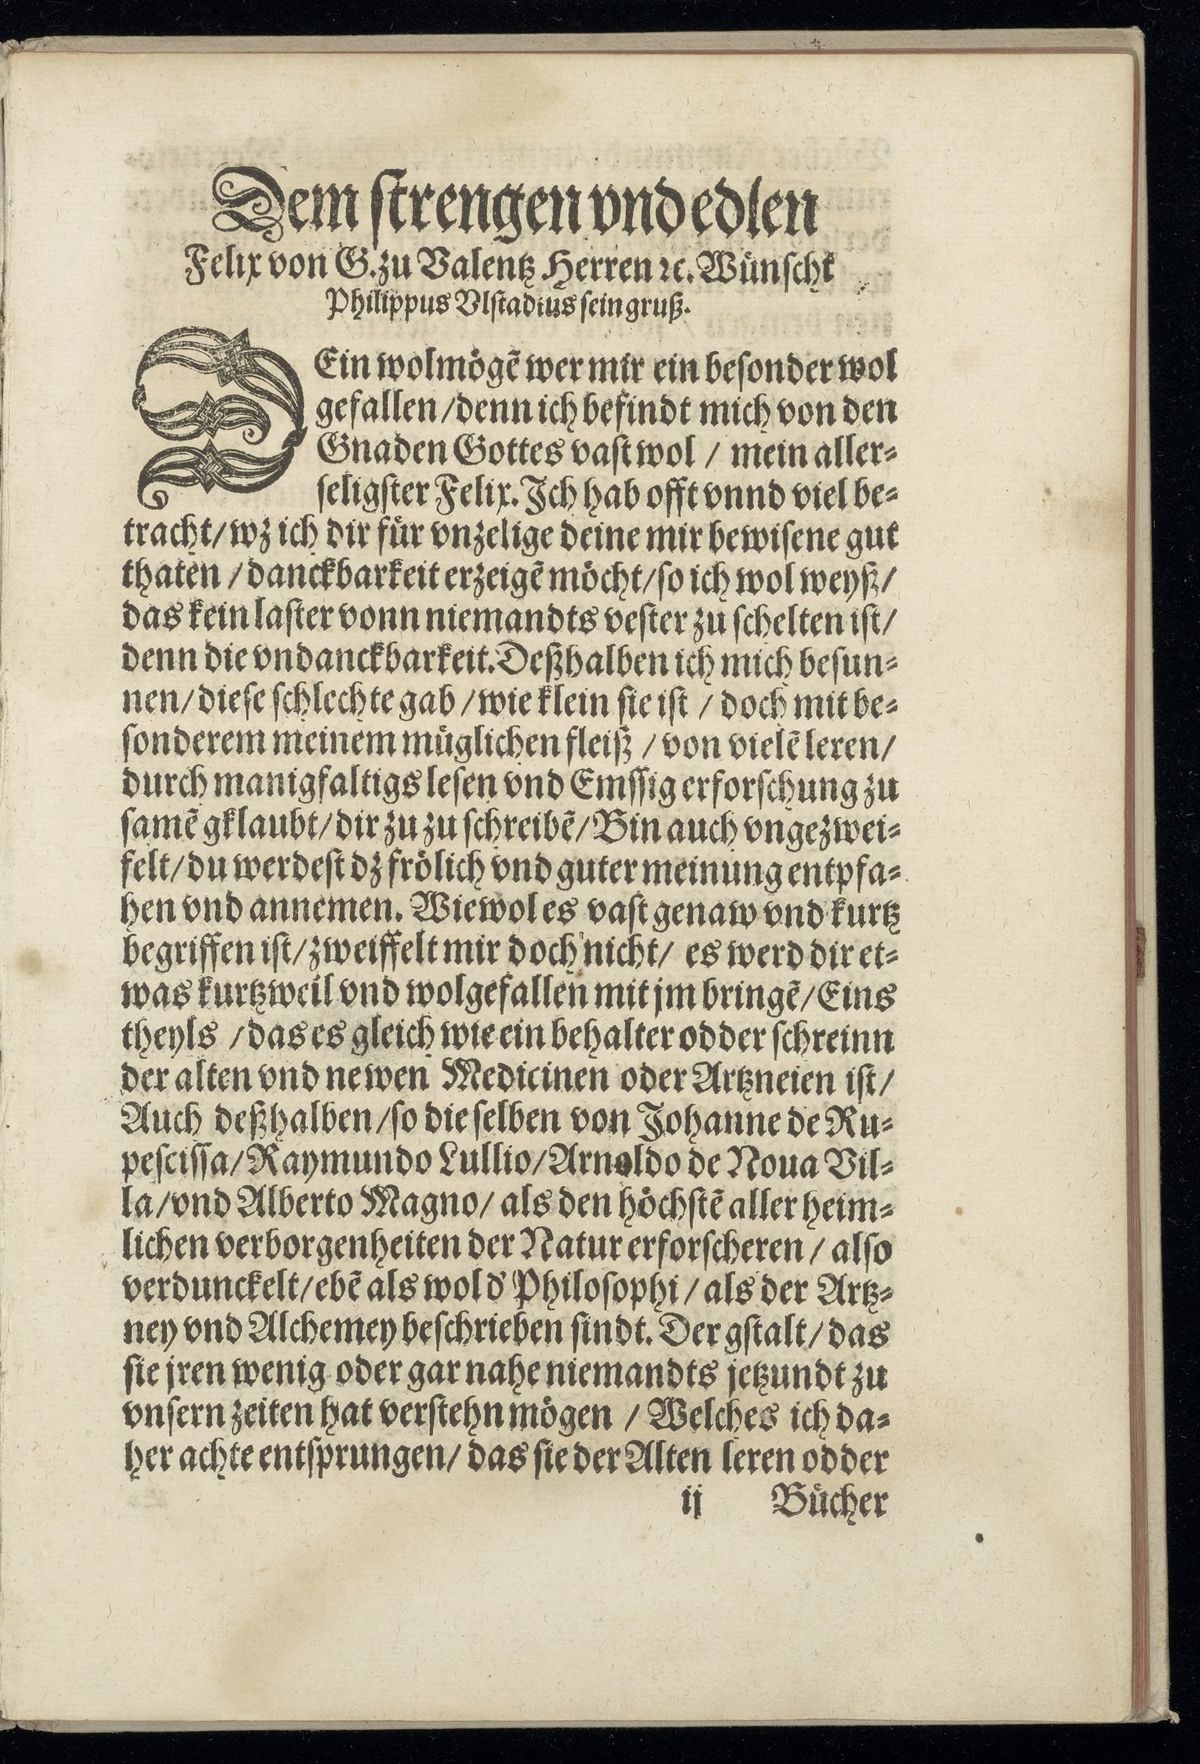 Dem strengen vnd edlen
Felix von G. zu Valentz Herren ꝛc. Wünscht
Philippus Vlstadius sein gruß.
DEin wolmögẽ wer mir ein besonder wol
gefallen / denn ich befindt mich von den
Gnaden Gottes vast wol / mein aller⸗
seligster Felix. Ich hab offt vnnd viel be⸗
tracht / wz ich dir für vnzelige deine mir bewisene gut
thaten / danckbarkeit erzeigẽ möcht / so ich wol weyß /
das kein laster vonn niemandts vester zu schelten ist /
denn die vndanckbarkeit. Deßhalben ich mich besun⸗
nen / diese schlechte gab / wie klein sie ist / doch mit be⸗
sonderem meinem müglichen fleiß / von vielẽ leren /
durch manigfaltigs lesen vnd Emssig erforschung zu
samẽ gklaubt / dir zu zu schreibẽ / Bin auch vngezwei⸗
felt / du werdest dz frölich vnd guter meinung entpfa⸗
hen vnd annemen. Wiewol es vast genaw vnd kurtz
begriffen ist / zweiffelt mir doch nicht / es werd dir et⸗
was kurtzweil vnd wolgefallen mit jm bringẽ / Eins
theyls / das es gleich wie ein behalter odder schreinn
der alten vnd newen Medicinen oder Artzneien ist /
Auch deßhalben / so die selben von Johanne de Ru⸗
pescissa / Raymundo Lullio / Arnoldo de Noua Vil⸗
la / vnd Alberto Magno / als den höchstẽ aller heim⸗
lichen verborgenheiten der Natur erforscheren / also
verdunckelt / ebẽ als wol d' Philosophi / als der Artz⸗
ney vnd Alchemey beschrieben sindt. Der gstalt / das
sie jren wenig oder gar nahe niemandts jetzundt zu
vnsern zeiten hat verstehn mögen / Welches ich da⸗
her achte entsprungen / das sie der Alten leren odder
ij Bücher